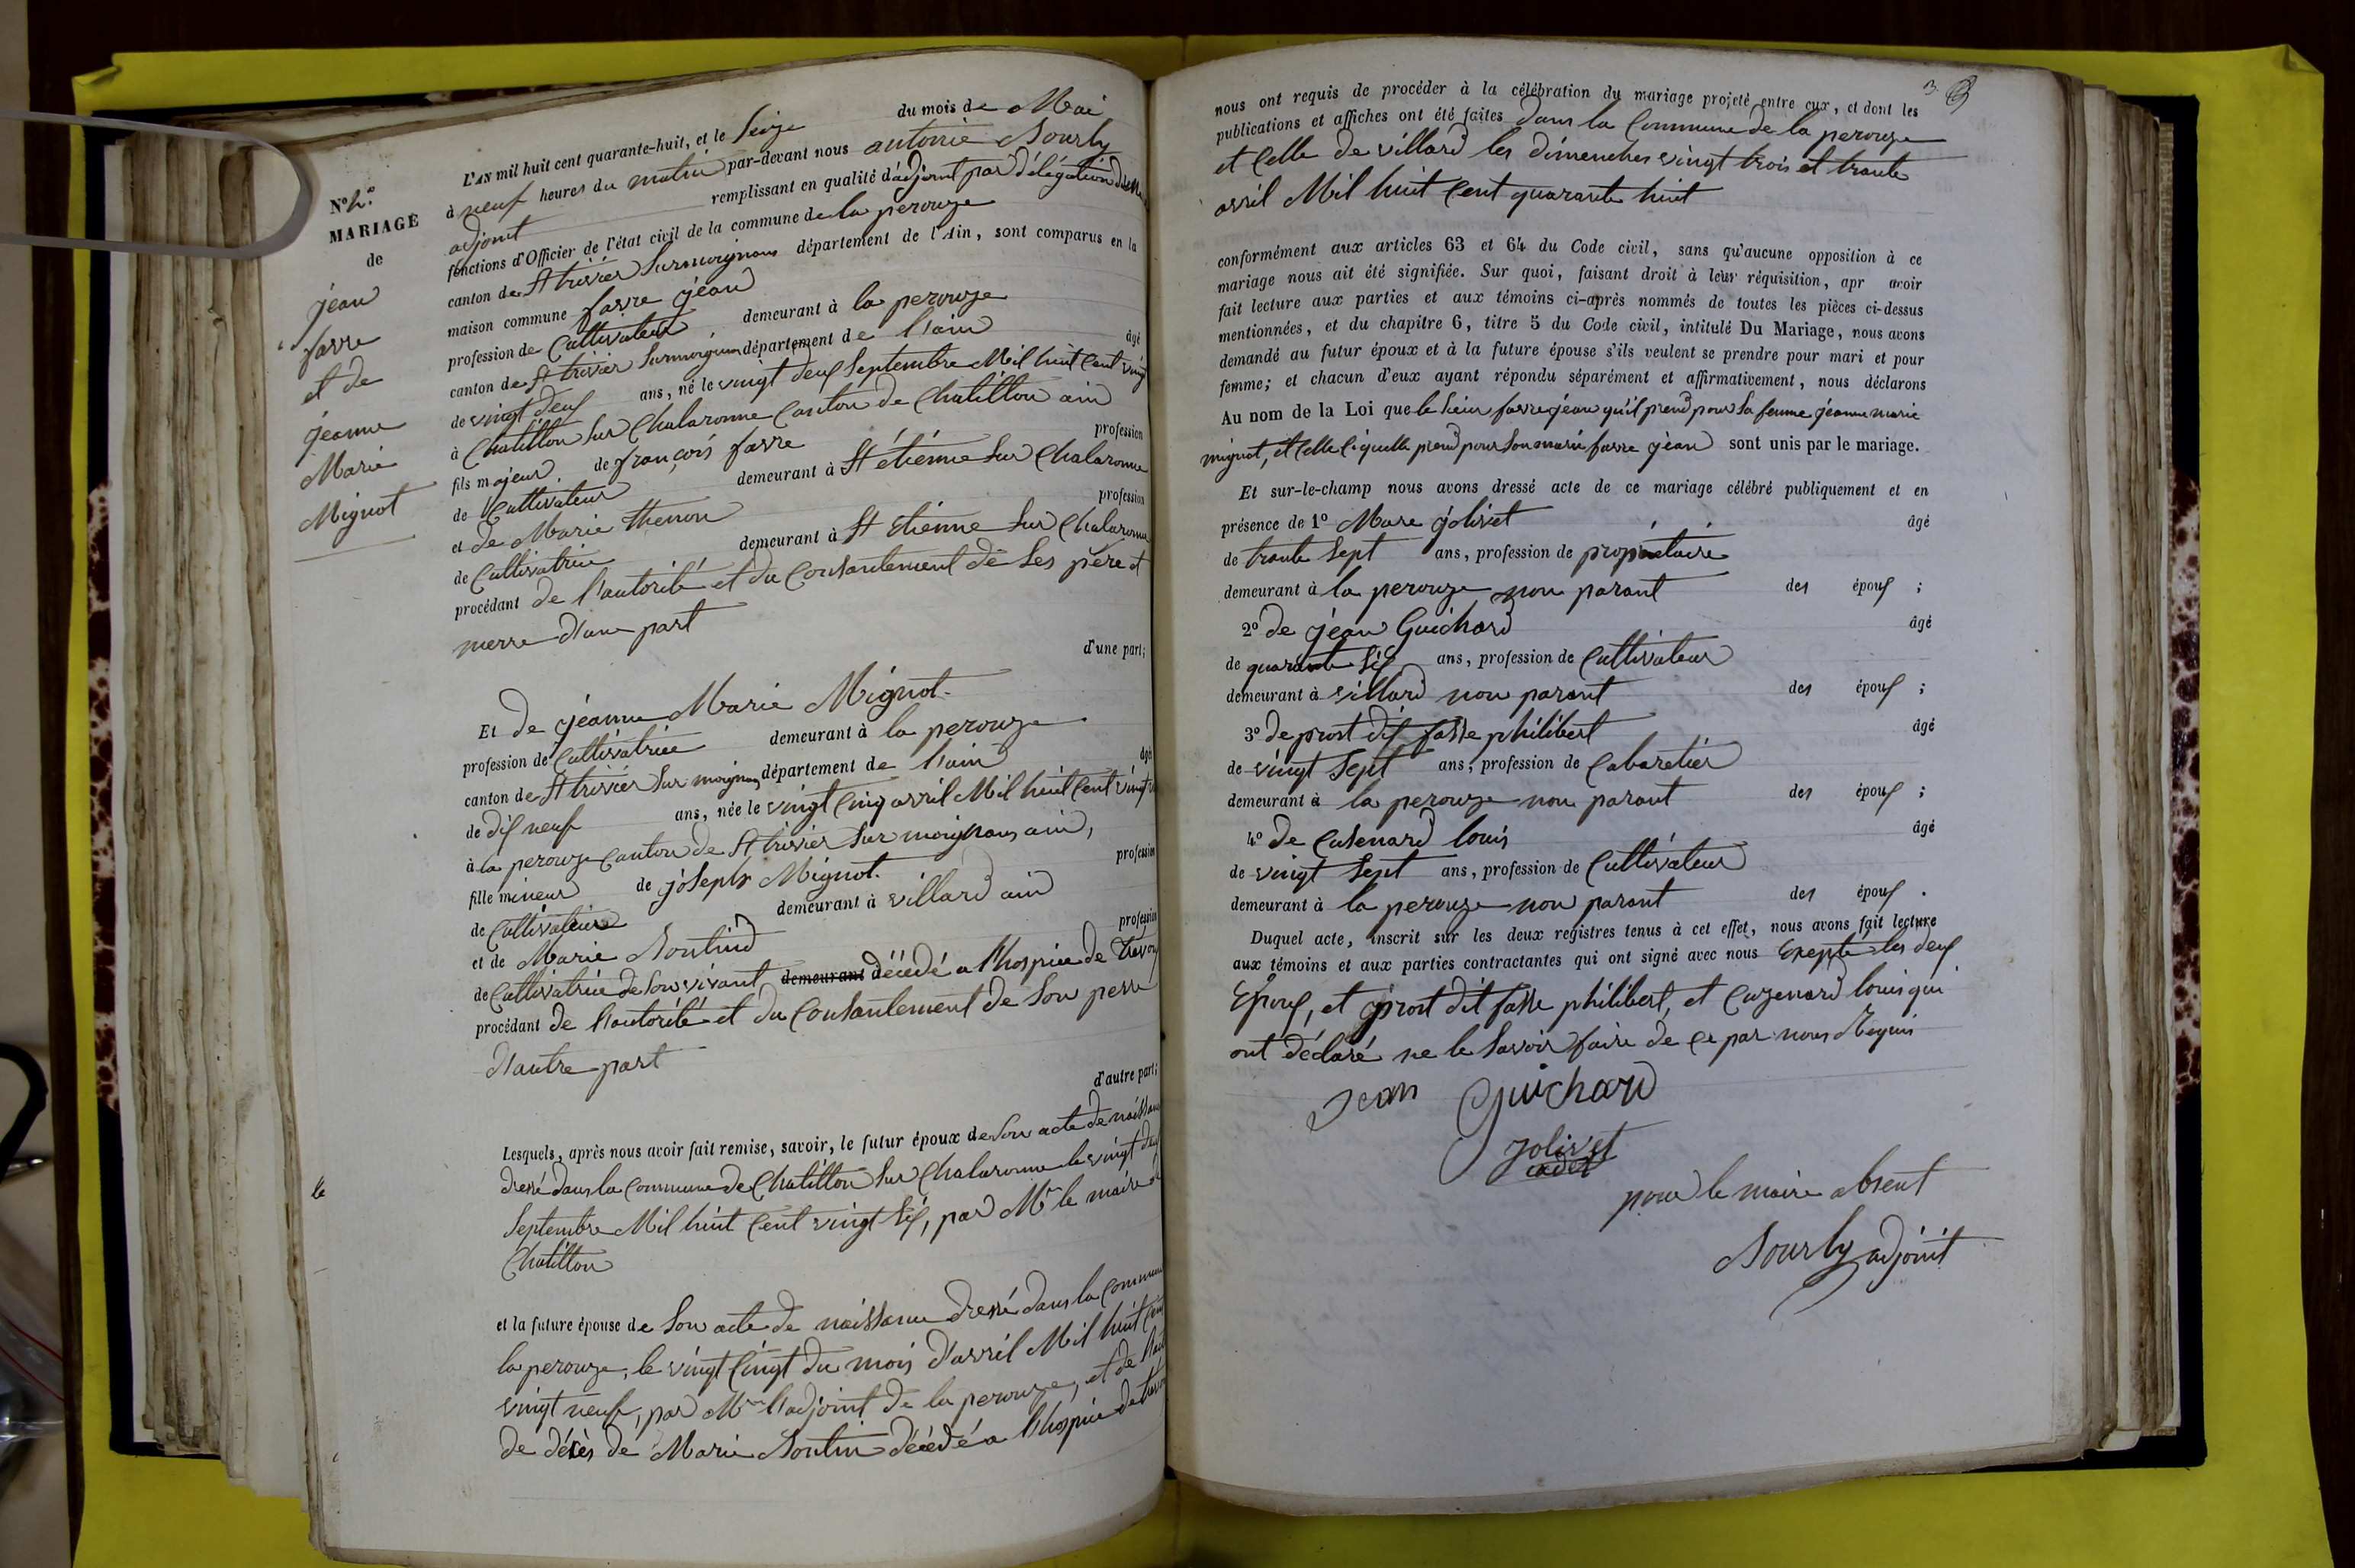 N° 2.
MARIAGE
de
jean
favre
et de
jeanne
Marie
Mignot
L'AN mil huit cent quarante-huit, et le Seize du mois de Mai
à neuf heures du matin par-devant nous antoine Sourly
adjoint remplissant en qualité d'adjoint par délégation
fonctions d'Officier de l'état civil de la commune de la perouze
canton de St trivier Surmoignans département de l'Ain, sont comparus en la
maison commune favre jean
profession de Cultivateur, demeurant à la perouze
canton de St trivier Surmoignans département de l'ain âgé
de vingt deux ans, né le vingt deux Septembre Mil huit Cent vingt
à Chatillon Sur Chalaronne Canton de Chatillon ain
fils majeur de françois favre profession
de Cultivateur demeurant à St étienne Sur Chalaronne
et de Marie thenon profession
de Cultivatrice demeurant à St Etienne Sur Chalaronne
procédant de l'autorité et du Consantement de Ses père et
merre d'une part
d'une part;
Et de jeanne Marie Mignot
profession de Cultivatrice demeurant à la perouze
canton de St trivier Sur moignans département de l'ain âgé
de dix neuf ans, née le vingt Cinq avril Mil huit Cent vingt
à la perouze Canton de St trivier Sur moignans ain,
fille mineur de joseph Mignot profession
de Cultivateur demeurant à villard ain
et de Marie Soutind profession
de Cultivatrice de Son vivant demeurant décédé a l'hospice de trevoux
procédant de l'autorité et du Consantement de Son perre
d'autre part
d'autre part;
Lesquels, après nous avoir fait remise, savoir, le futur époux de Son acte de naissance
le
dressé dans la Commune de Chatillon Sur Chalaronne le vingt deux
Septembre Mil huit Cent vingt Six, par Mr le maire de
Chatillon
et la future épouse de Son acte de naissance dressé dans la Commune
la perouze, le vingt Cinqt du mois d'avril Mil huit Cent
vingt neuf, par Mr l'adjoint de la perouze, et de l'acte
de décès de Marie Soutin décédé a l'hospice de trevoux
3
nous ont requis de procéder à la célébration du mariage projeté entre eux, et dont les
publications et affiches ont été faites dans la Commune de la perouze
et Celle de villard les dimenches vingt trois et trante
avril Mil huit Cent quarante huit
conformément aux articles 63 et 64 du Code civil, sans qu'aucune opposition à ce
mariage nous ait été signifiée. Sur quoi, faisant droit à leur réquisition, apr avoir
fait lecture aux parties et aux témoins ci-après nommés de toutes les pièces ci-dessus
mentionnées, et du chapitre 6, titre 5 du Code civil, intitulé Du Mariage, nous avons
demandé au futur époux et à la future épouse s'ils veulent se prendre pour mari et pour
femme; et chacun d'eux ayant répondu séparément et affirmativement, nous déclarons
Au nom de la Loi que le Sieur favre jean qu'il prend pour Sa femme jeanne marie
mignot, et Celle Ci quelle prend pour Son marie favre jean sont unis par le mariage.
Et sur-le-champ nous avons dressé acte de ce mariage célébré publiquement et en
présence de 1° Marc jolivet âgé
de trante Sept ans, profession de propriétaire
demeurant à la perouze non parant des époux ;
2° de jean Guichard âgé
de quarante Six ans, profession de Cultivateur
demeurant à villard non parant des époux ;
3° de prost dit fasse philibert âgé
de vingt Sept ans, profession de Cabaretier
demeurant à la perouze non parant des époux ;
4° de Casenard louis âgé
de vingt Sept ans, profession de Cultivateur
demeurant à la perouze non parant des époux .
Duquel acte, inscrit sur les deux registres tenus à cet effet, nous avons fait lecture
aux témoins et aux parties contractantes qui ont signé avec nous Exepté les deux
Epoux, et prost dit fasse philibert, et Cazenard louis qui
ont déclaré ne le Savoir faire de ce par nous Requis
Jean Guichard
Jolivet
cadet
pour le maire absent
Sourly adjoint